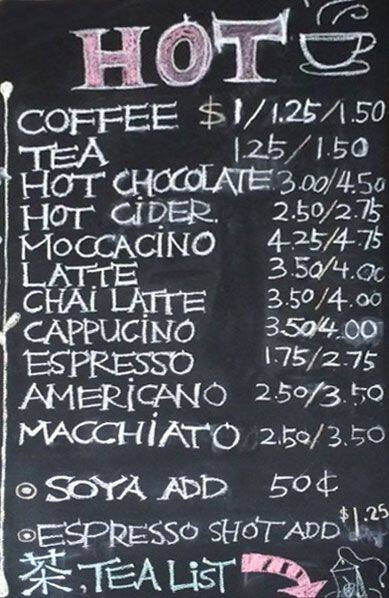 HOT
COFFEE $ 1/1.25/1.50
TEA 1.25/1.50
HOT CHOCOLATE 3.00/4.50
HOT CIDER. 2.50/2.75
MOCCACINO 4.25/4.75
LATTE 3.50/4.00
CHAI LATTE 3.50/4.00
CAPPUCINO 3.50/4.00
ESPRESSO 1.75/2.75
AMERICANO 2.50/3.50
MACCHIATO 2.50/3.50
SOYA ADD 50¢
ESPRESSO SHOT ADD $1.25
茶, TEA LIST